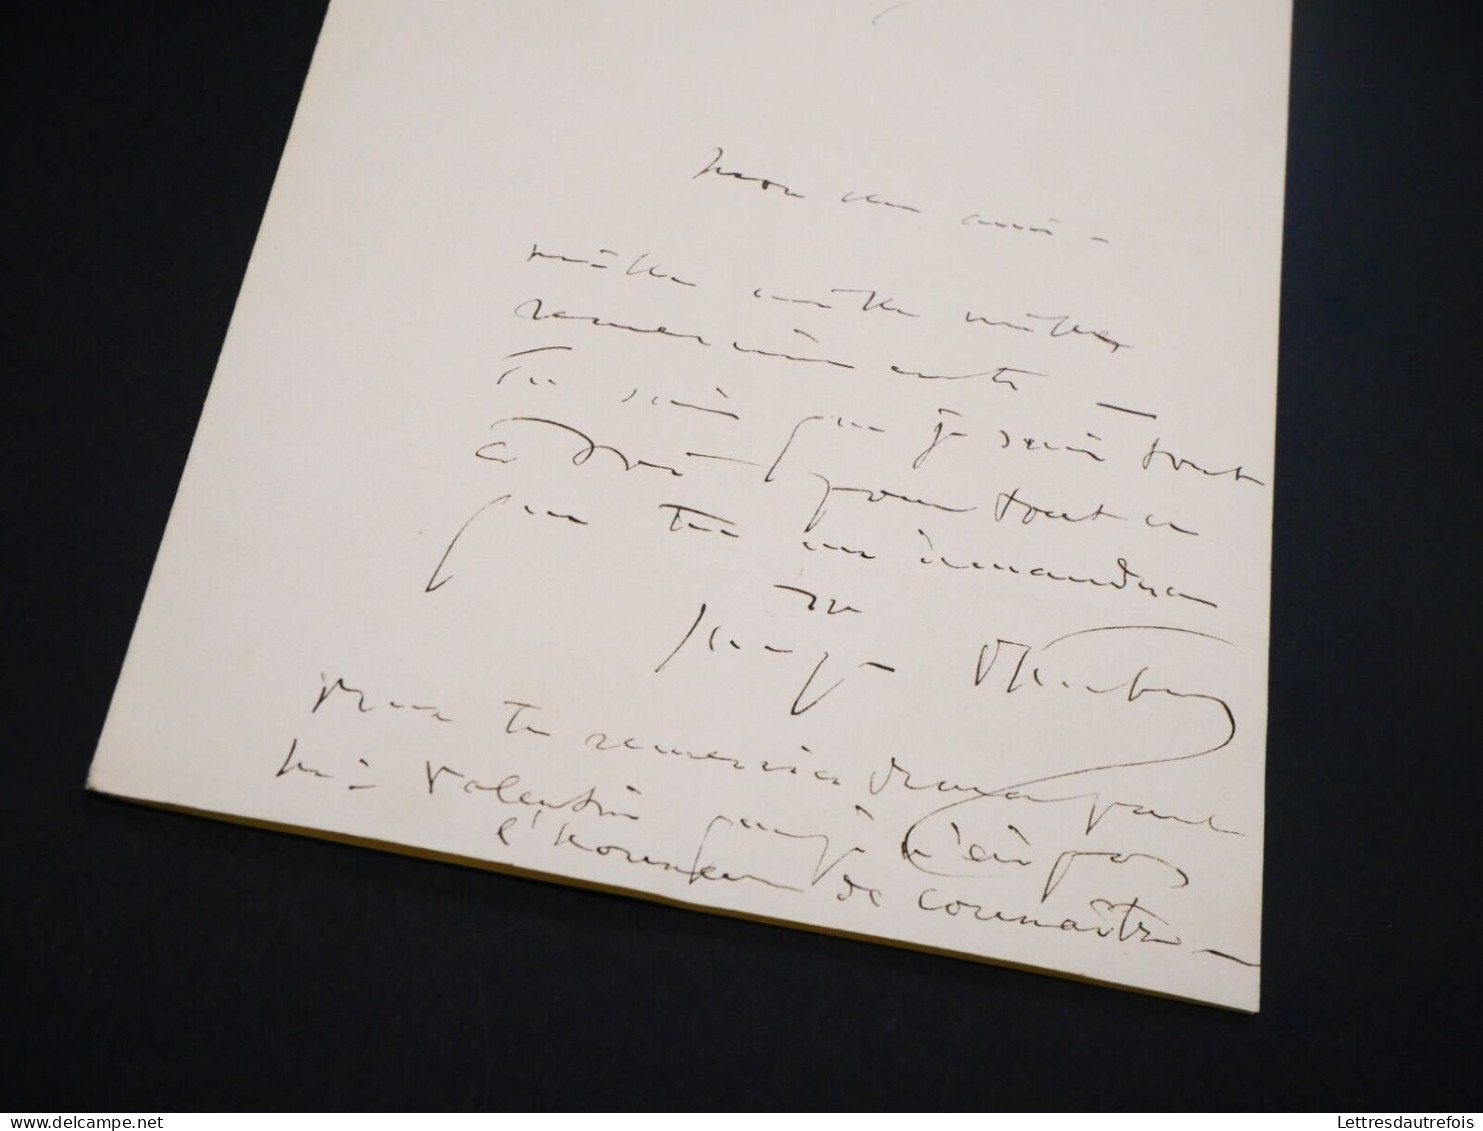 mon cher ami -
mille mille mille
remerciements —
Tu sais que je suis tout
à toi pour tout ce
que tu me demanderas
Veux tu remercier de ma part
Mr Valentin que je n'ai pas
l'honneur de connaître —
www.delcampe.net
Lettresdautrefois